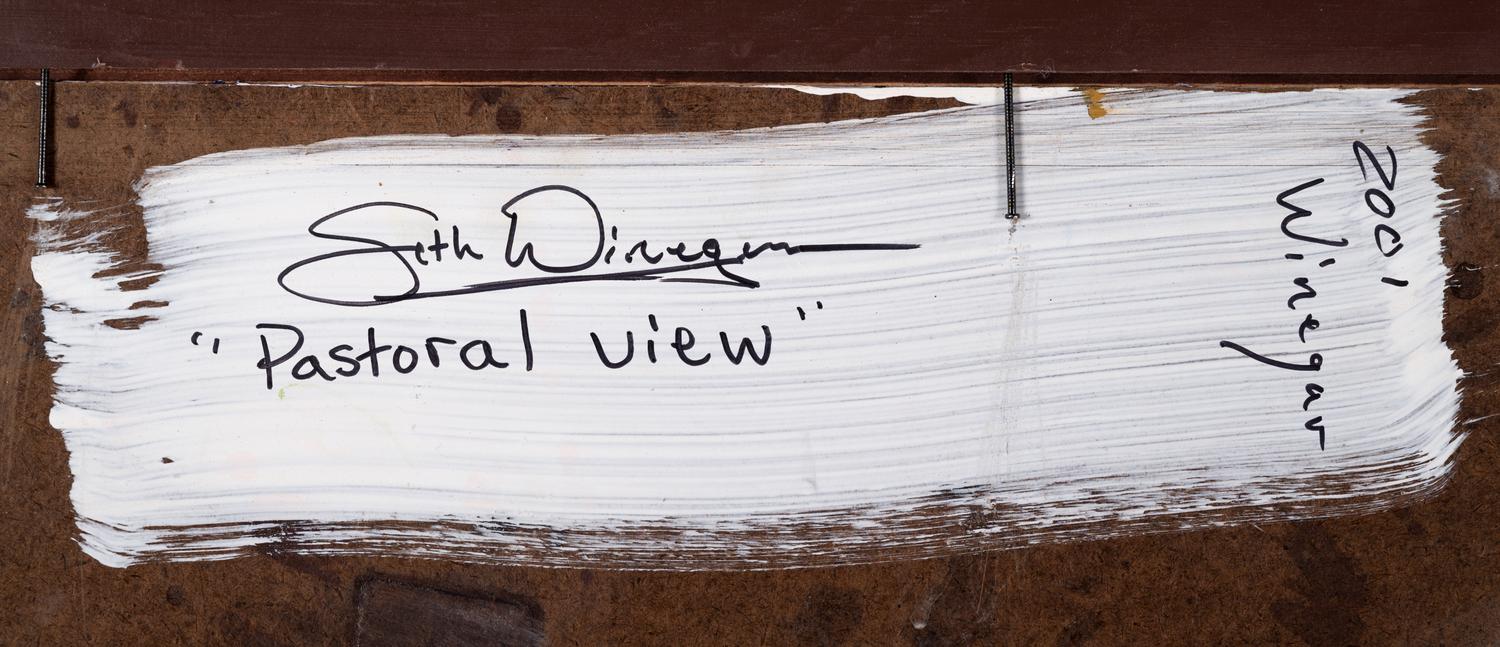 Seth Winegar
"Pastoral view"
2001
Winegar